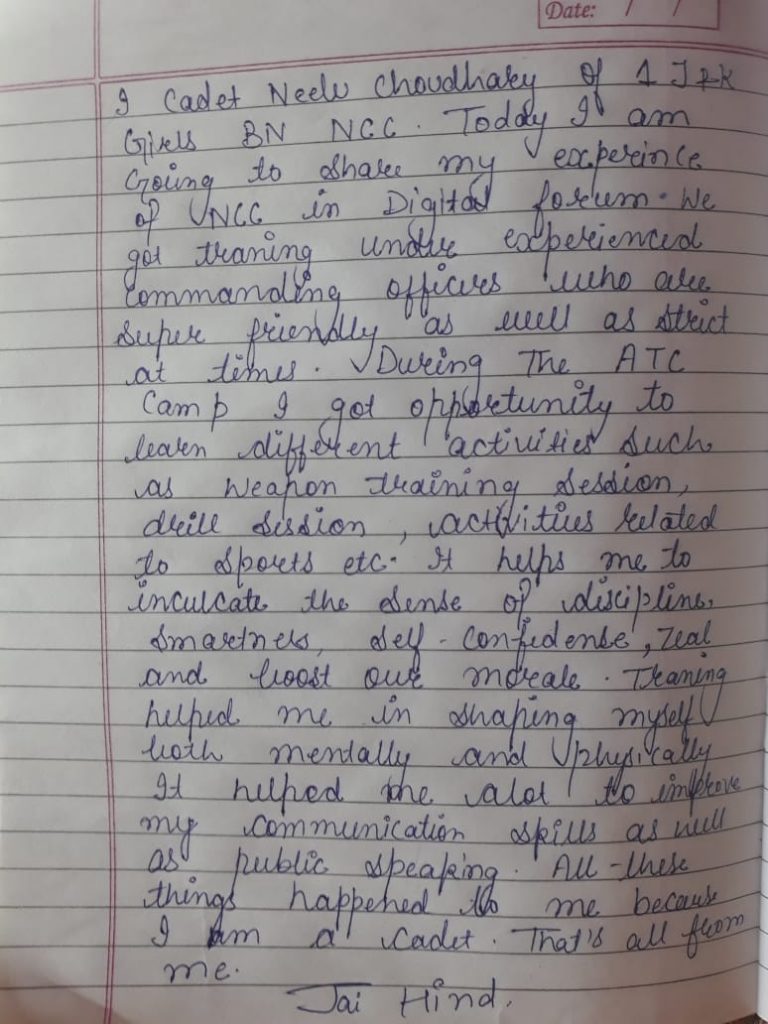 Date: / /
I Cadet Neelu Choudhary of 1 J&K
Girls BN NCC. Today I am
Going to share my experince
of NCC in Digital forum. We
got traning under experienced
Commanding officers who are
super friendly as well as strict
at times. During The ATC
Camp I got opportunity to
learn different activities such
as weapon training session,
drill session, activities related
to sports etc. It helps me to
inculcate the sense of discipline,
smartness, self-confidense, zeal
and boost our morale. Traning
helped me in shaping myself
both mentally and physically
It helped me alot to improve
my communication skills as well
as public speaking. All these
things happened to me because
I am a cadet. That's all from
me.
Jai Hind.